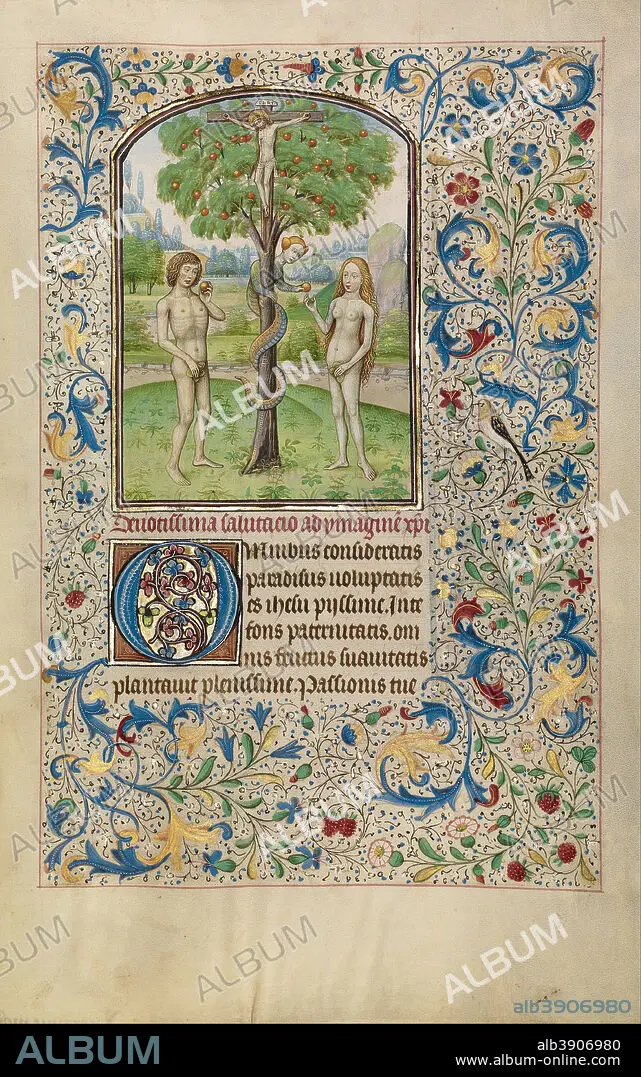 Deuotissima salutacio ad ymagine xpi
Omnibus consideratis
paradisus uoluptatis
es ihesu pijssime. Inte
fons paternitatis. om
nis fructus suauitatis
plantauit plenissime. Passionis tue
alb3906980
ALBUM
alb3906980
www.album-online.com